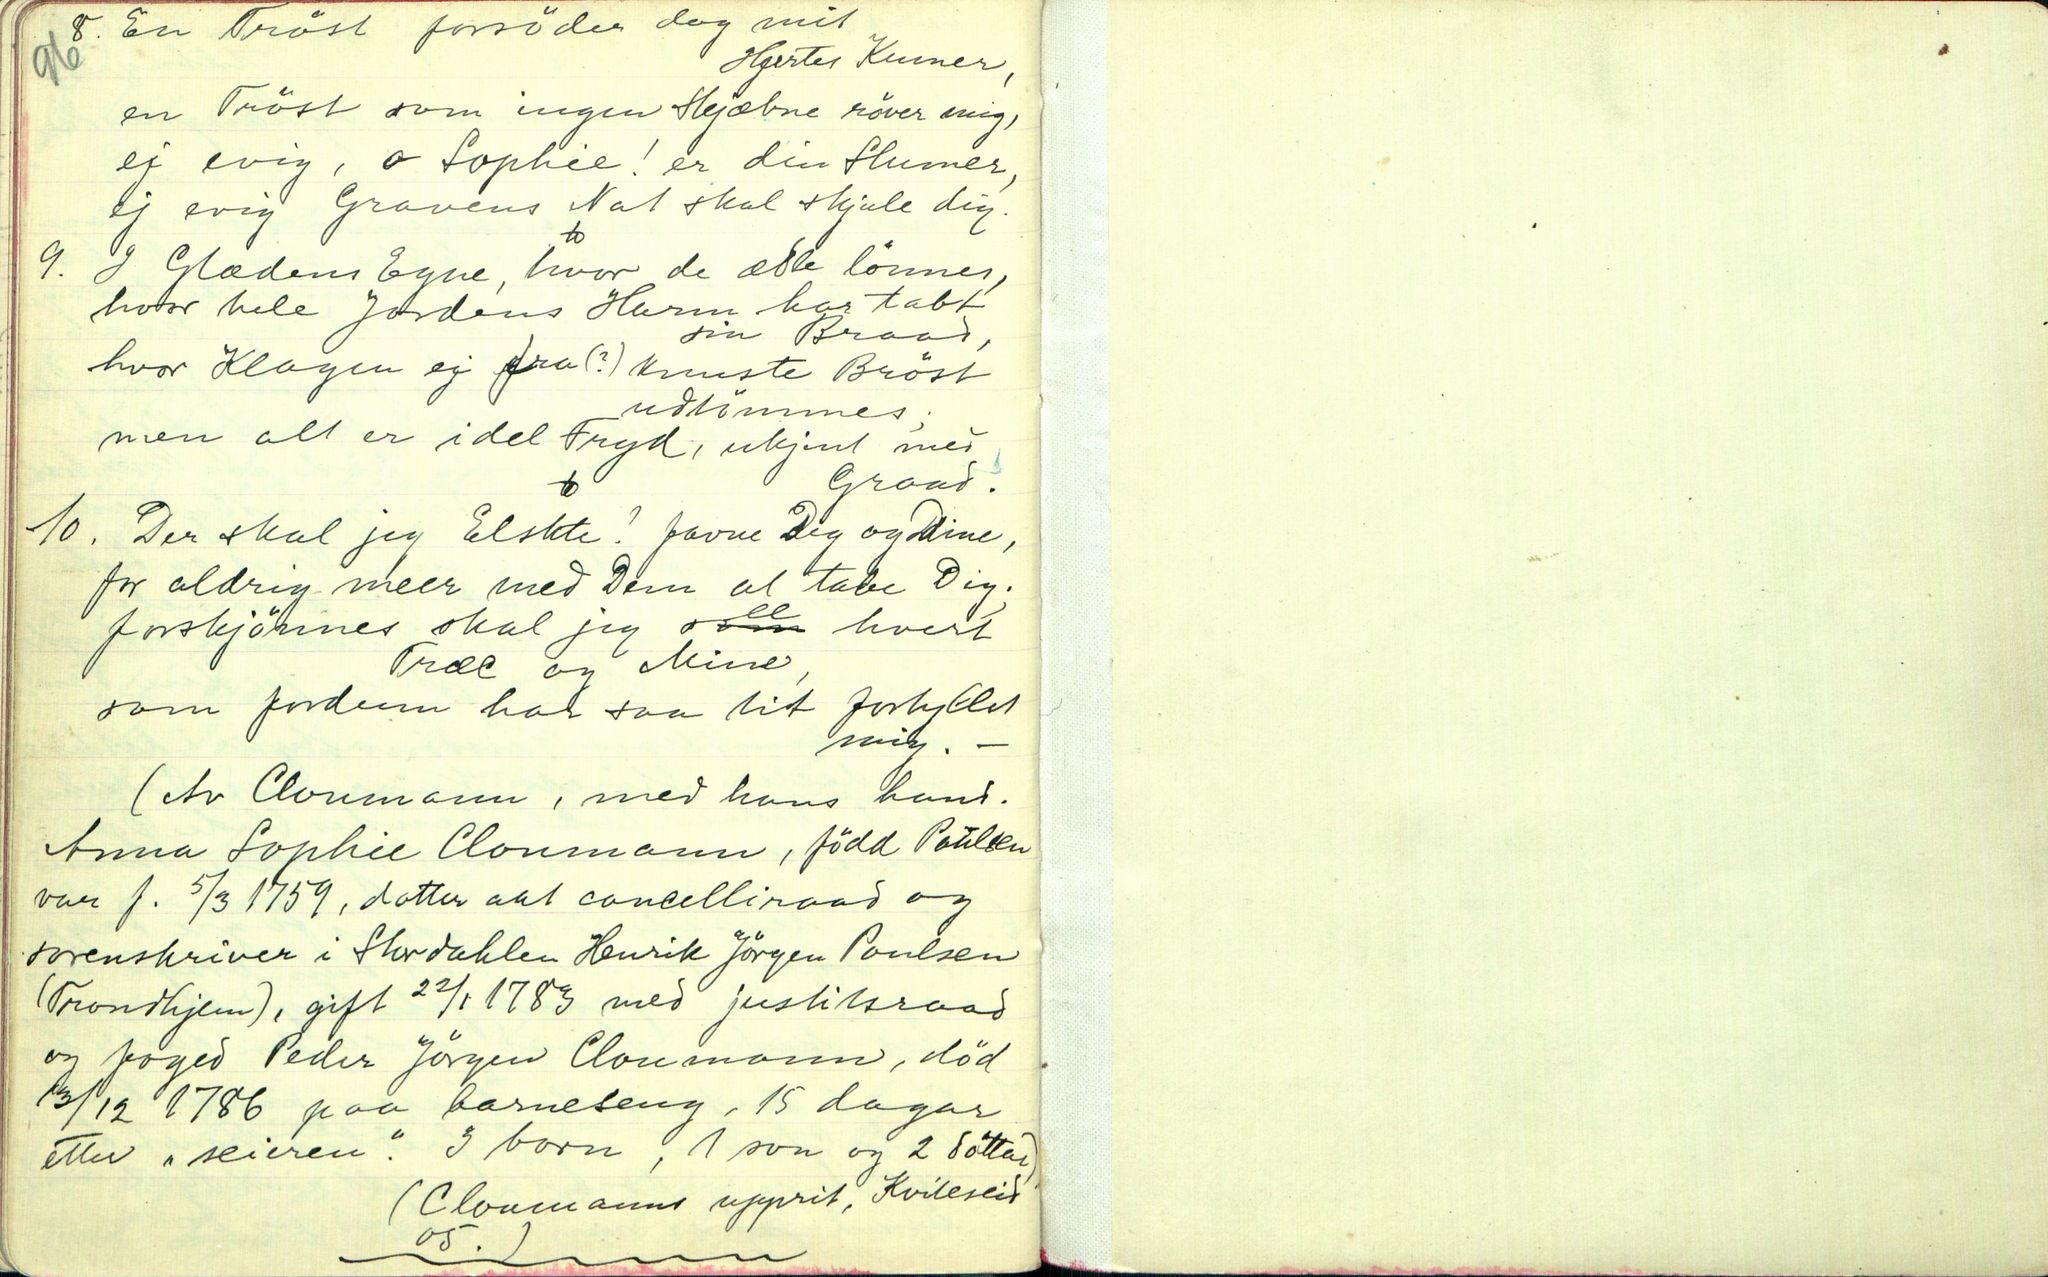 96
8. En Tröst forsöder dog mit
Hjertes Kumer,
en Tröst som ingen Skjæbne röver mig,
ej evig, o Sophie! er din Slumer,
ej evig Gravens Nat skal skjule dig.
9. I Glædens Egne, hvor de ædle lönnes,
hvor hele Jordens Harm har tabt
sin Braad,
hvor Klagen ej fra (?) knuste Bröst
udtömmes,
men alt er idel Fryd, ukjent med
Graad.
10. Der skal jeg Elskte! favne Dig og Dine,
for aldrig meer med Dem at tabe Dig,
forskjönnes skal jeg se hvert
Træk og Mine,
som fordum har saa tit fortyllet
mig. —
(Av Cloumann, med hans hand.
Anna Sophie Cloumann, född Paulsen
var f. 5/3 1759, dotter aat cancelliraad og
sorenskriver i Stordahlen Henrik Jörgen Poulsen
(Trondhjem), gift 22/1 1783 med justitsraad
og foged Peder Jörgen Cloumann, död
13/12 1786 paa barneseng, 15 dagar
etter "seieren". 3 born, 1 son og 2 döttar)
(Cloumanns uppsit, Kviteseid
05.)